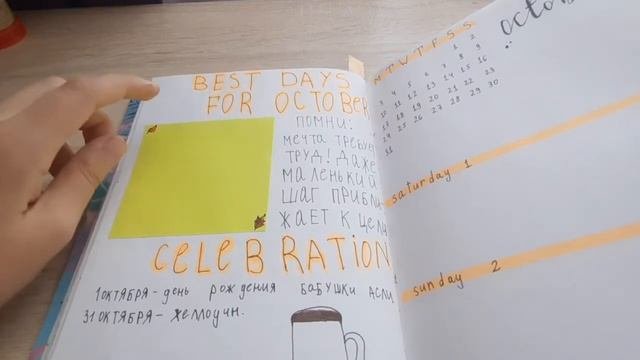 BEST DAYS
FOR OCTOBER
ПОМНИ:
мечта требует
труд! Даже
маленький
шаг прибли-
жает к цели
CELEBRATION
1 октября - день рождения бабушки Асли
31 октября - хеллоуин.
M T V T F S S
1 2
3 4 5 6 7 8 9
10 11 12 13 14 15 16
17 18 19 20 21 22 23
24 25 26 27 28 29 30
31
saturday 1
sunday 2